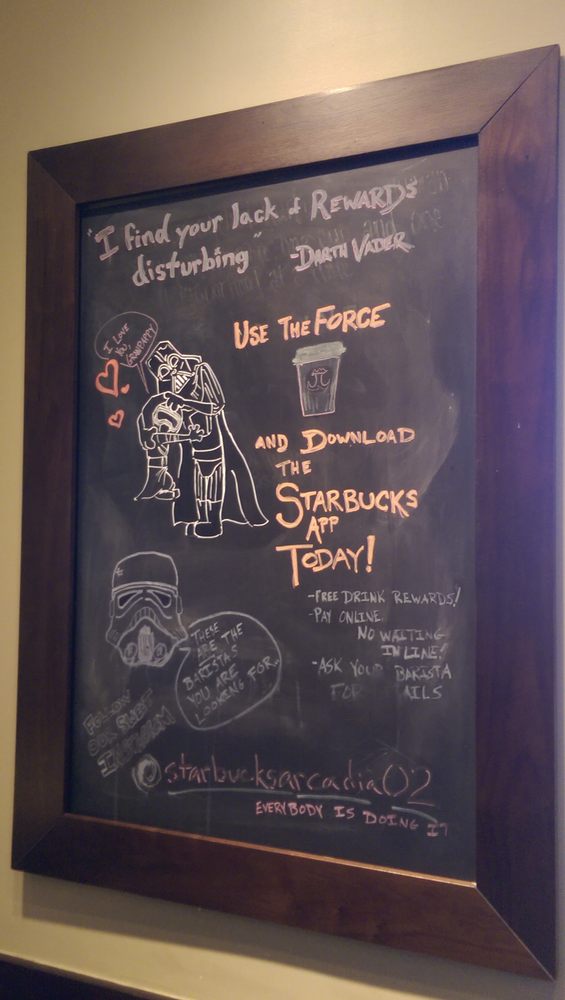 "I find your lack of REWARDS
disturbing" -DARTH VADER
I LOVE
YOU,
GRANPAPPY
USE THE FORCE
AND DOWNLOAD
THE
STARBUCKS
APP
TODAY!
-FREE DRINK REWARDS!
-PAY ONLINE,
NO WAITING
IN LINE!
-ASK YOUR BARISTA
FOR
THESE
ARE THE
BARISTAS
YOU ARE
LOOKING FOR...
FOLLOW
OUR
INSTAGRAM
starbucksarcadia02
EVERYBODY IS DOING IT